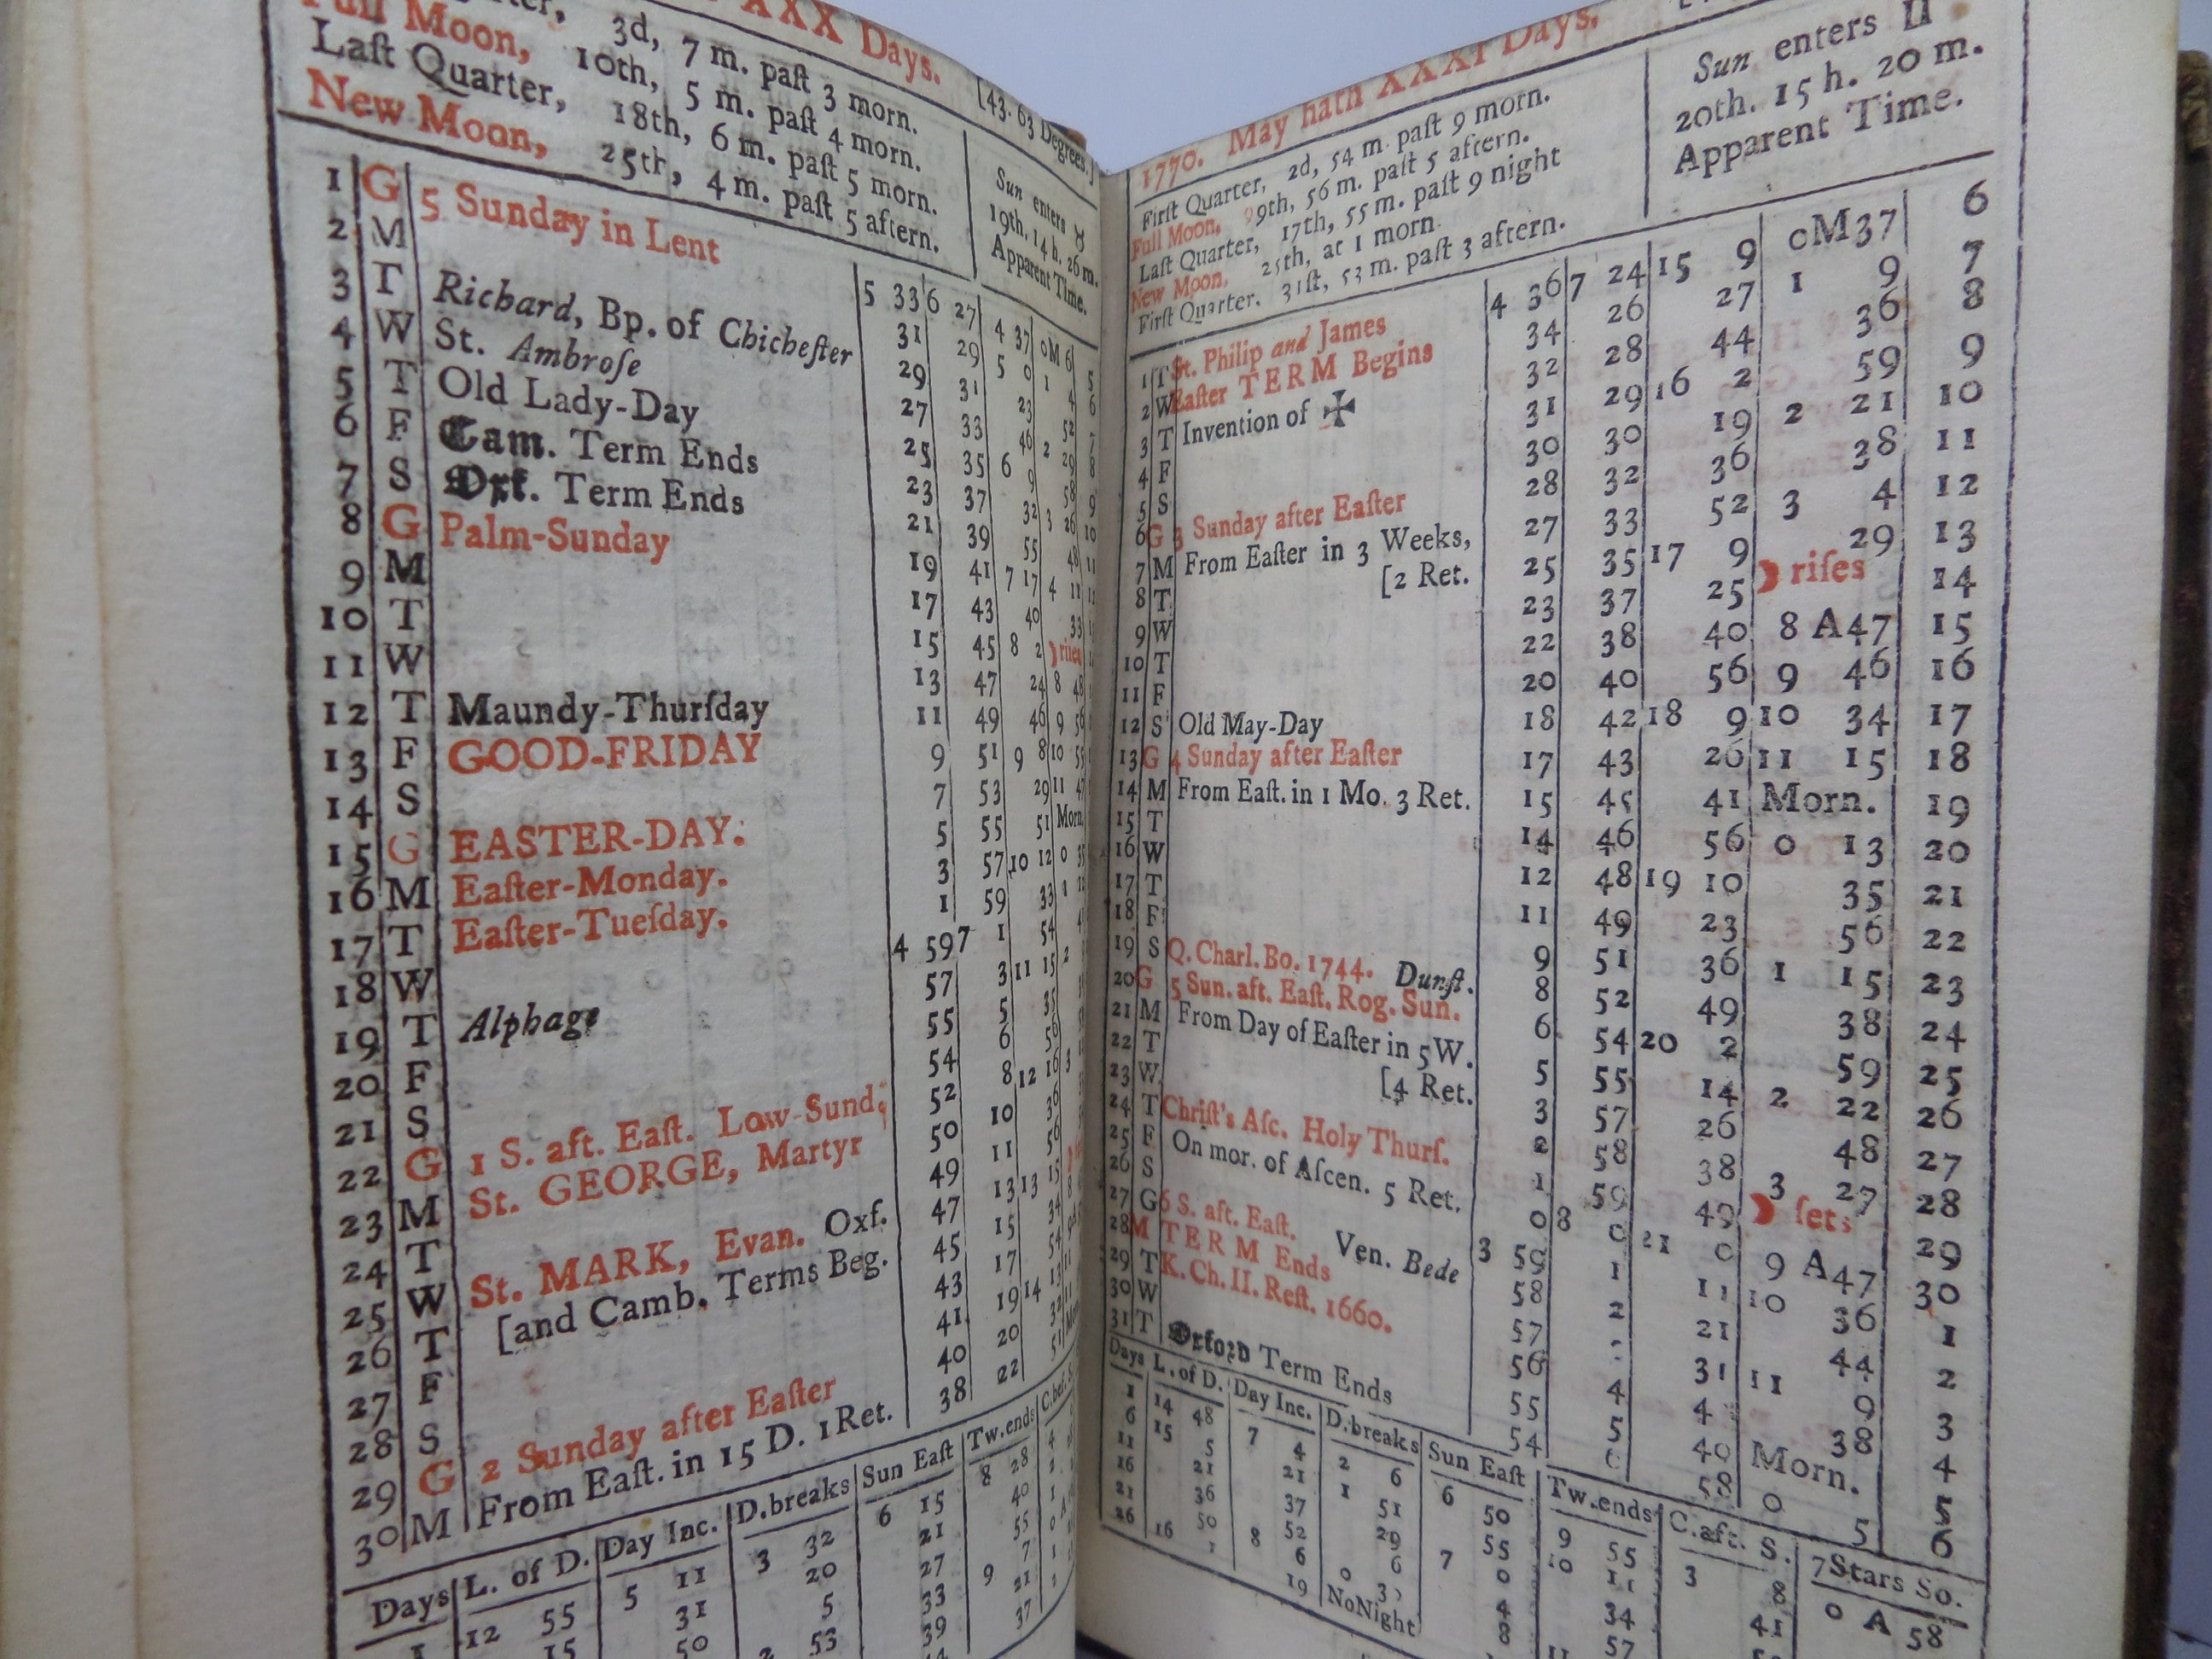 XXX Days. [43. 63 Degrees.]
3d, 7 m. paſt 3 morn.
Full Moon, 10th, 5 m. paſt 4 morn.
Laſt Quarter, 18th, 6 m. paſt 5 morn.
New Moon, 25th, 4 m. paſt 5 aftern.
Sun enters ♉
19th. 14 h. 26 m.
Apparent Time.
1 G 5 Sunday in Lent 5 33 6 27 4 37 0M 6
2 M 31 29 5 0 1
3 T Richard, Bp. of Chicheſter 29 31 23
4 W St. Ambroſe 27 33 46 2
5 T Old Lady-Day 25 35 6 9
6 F Cam. Term Ends 23 37 32 3 26
7 S Oxf. Term Ends 21 39 55 48
8 G Palm-Sunday 19 41 7 17 4 11
9 M 17 43 40 33
10 T 15 45 8 2 riſes
11 W 13 47 24 8 48
12 T Maundy-Thurſday 11 49 46 9 56
13 F GOOD-FRIDAY 9 51 9 8 10 55
14 S 7 53 29 11 47
15 G EASTER-DAY. 5 55 51 Morn.
16 M Eaſter-Monday. 3 57 10 12 0
17 T Eaſter-Tueſday. 1 59 33
18 W 4 59 7 1 54
19 T Alphage 57 3 11 15 2
20 F 55 5 35
21 S 54 6 56
22 G 1 S. aft. Eaſt. Low-Sund. 52 8 12 16 3
23 M St. GEORGE, Martyr 50 10 36
24 T 49 11 56
25 W St. MARK, Evan. Oxf. 47 13 13 15
26 T [and Camb. Terms Beg. 45 15 34
27 F 43 17 54
28 S 41 19 14 13
29 G 2 Sunday after Eaſter 40 20 32
30 M From Eaſt. in 15 D. 1 Ret. 38 22 51
Days L. of D. Day Inc. D.breaks Sun Eaſt Tw.ends
1 12 55 5 11 3 32 6 15 8 28
15 31 20 21 40
50 5 27 55
2 53 33 9 7
39 21
37
1770. May hath XXXI Days.
Firſt Quarter, 2d, 54 m. paſt 9 morn.
Full Moon, 9th, 56 m. paſt 5 aftern.
Laſt Quarter, 17th, 55 m. paſt 9 night
New Moon, 25th, at 1 morn.
Firſt Quarter. 31ſt, 53 m. paſt 3 aftern.
Sun enters II
20th. 15 h. 20 m.
Apparent Time.
1 T St. Philip and James 4 36 7 24 15 9 0M37 6
2 W Eaſter TERM Begins 34 26 27 1 9 7
3 T Invention of ✠ 32 28 44 36 8
4 F 31 29 16 2 59 9
5 S 30 30 19 2 21 10
6 G 3 Sunday after Eaſter 28 32 36 38 11
7 M From Eaſter in 3 Weeks, 27 33 52 3 4 12
8 T [2 Ret. 25 35 17 9 29 13
9 W 23 37 25 riſes 14
10 T 22 38 40 8 A47 15
11 F 20 40 56 9 46 16
12 S Old May-Day 18 42 18 9 10 34 17
13 G 4 Sunday after Eaſter 17 43 26 11 15 18
14 M From Eaſt. in 1 Mo. 3 Ret. 15 45 41 Morn. 19
15 T 14 46 56 0 13 20
16 W 12 48 19 10 35 21
17 T 11 49 23 56 22
18 F 9 51 36 1 15 23
19 S Q. Charl. Bo. 1744. Dunſt. 8 52 49 38 24
20 G 5 Sun. aft. Eaſt. Rog. Sun. 6 54 20 2 59 25
21 M From Day of Eaſter in 5 W. 5 55 14 2 22 26
22 T [4 Ret. 3 57 26 48 27
23 W 2 58 38 3 27 28
24 T Chriſt's Aſc. Holy Thurſ. 1 59 49 ſets 29
25 F On mor. of Aſcen. 5 Ret. 0 8 0 21 0 9 A47 30
26 S 3 59 1 11 10 36 1
27 G 6 S. aft. Eaſt. Ven. Bede 58 2 21 44 2
28 M TERM Ends 57 31 11 9 3
29 T K. Ch. II. Reſt. 1660. 56 4 4 38 4
30 W 55 5 40 Morn. 5
31 T Oxford Term Ends 54 58 0 5 6
Days L. of D. Day Inc. D.breaks Sun Eaſt Tw.ends C.aft. S. 7Stars So.
1 14 48 7 4 2 6 6 50 9 55 3 8 0 A 58
6 15 5 21 1 51 55 10 11 41
11 21 37 29 7 0 34
16 36 52 6 4 57
21 50 8 6 0 8
26 16 1 19 NoNight